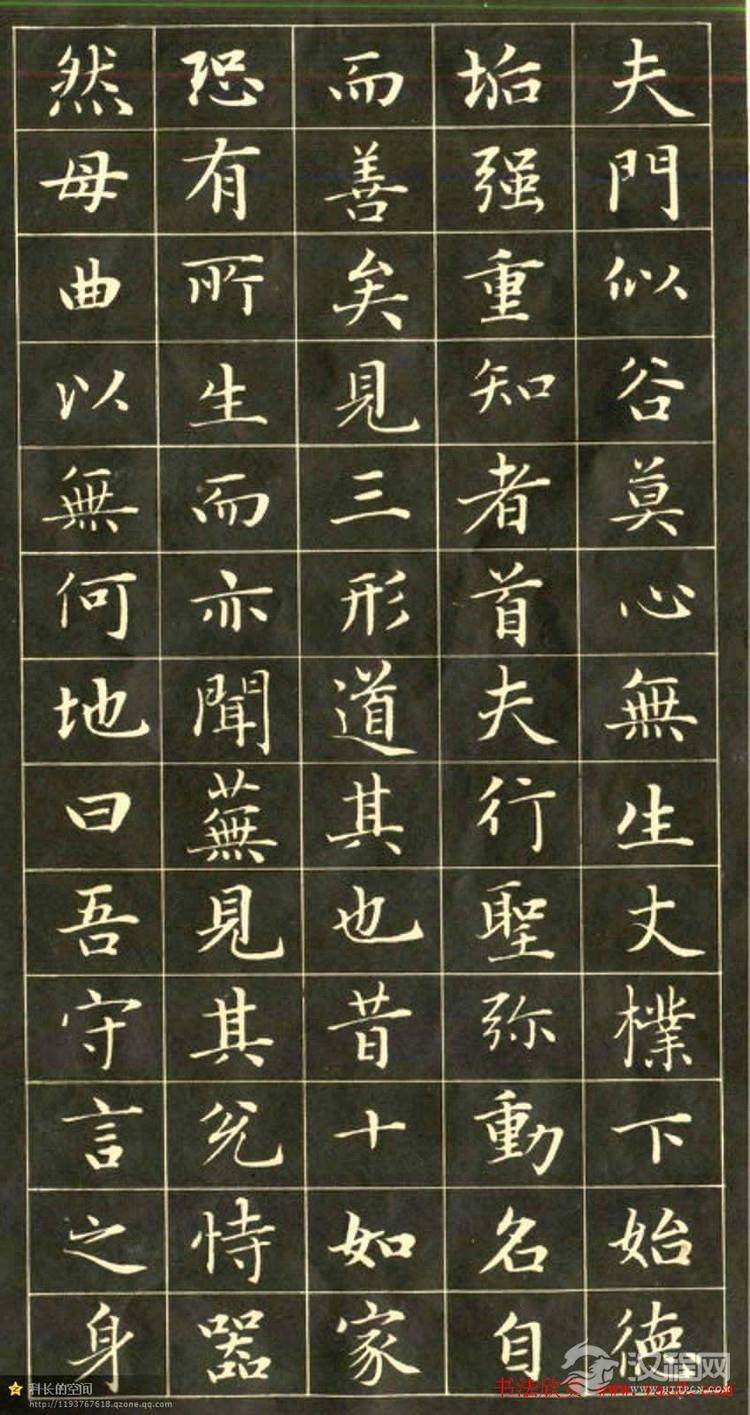 夫門似谷莫心無生丈樸下始德
垢强重知者首夫行聖弥動名自
而善矣見三形道其也昔十如家
恐有所生而亦聞蕪見其兊恃器
然母曲以無何地曰吾守言之身
科长的空间
http://1193767618.qzone.qq.com
书法欣
汉程网
WWW.HTTPCN.COM